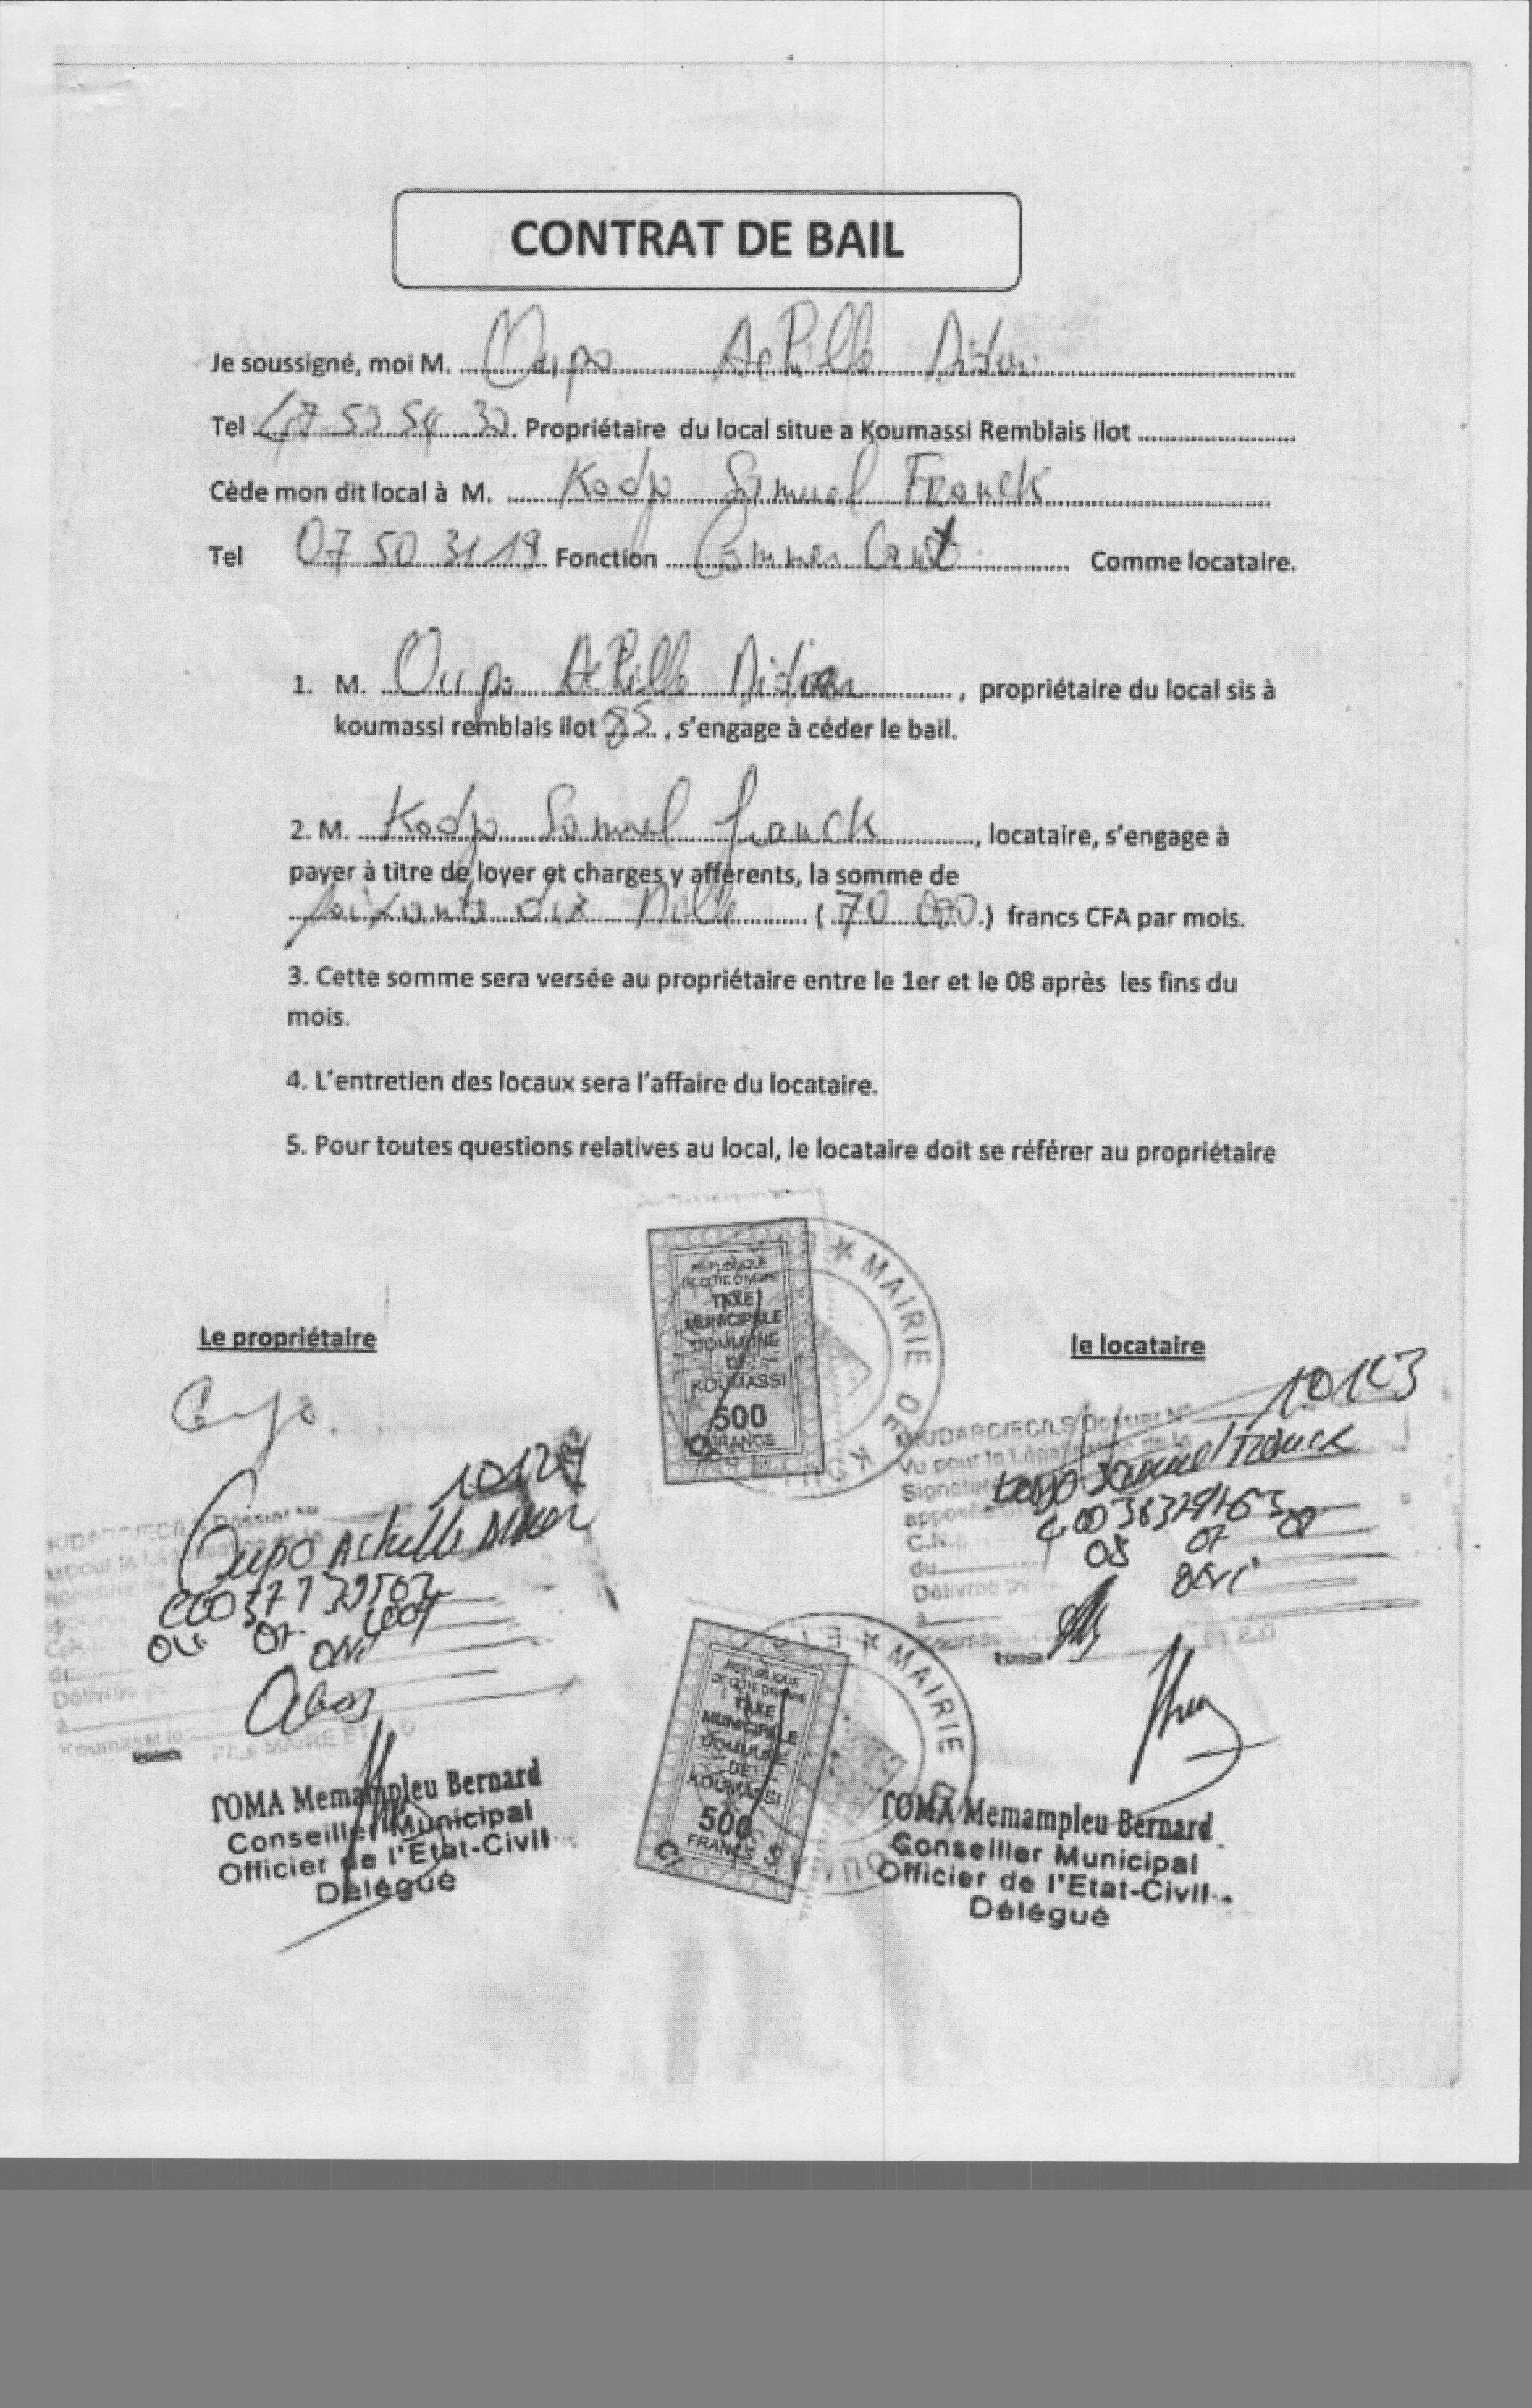 CONTRAT DE BAIL
Je soussigné, moi M. Oupo Achille Didier
Tel 47 53 54 30 Propriétaire du local situe a Koumassi Remblais Ilot
Cède mon dit local à M. Kodjo Samuel Franck
Tel 07 50 31 19 Fonction Commerçant Comme locataire.
1. M. Oupo Achille Didier, propriétaire du local sis à
koumassi remblais ilot 85, s'engage à céder le bail.
2. M. Kodjo Samuel franck, locataire, s'engage à
payer à titre de loyer et charges y afférents, la somme de
soixante dix Mille (70 000) francs CFA par mois.
3. Cette somme sera versée au propriétaire entre le 1er et le 08 après les fins du
mois.
4. L'entretien des locaux sera l'affaire du locataire.
5. Pour toutes questions relatives au local, le locataire doit se référer au propriétaire
REPUBLIQUE
DE COTE D'IVOIRE
TAXE
MUNICIPALE
COMMUNE
DE
KOUMASSI
500
FRANCS
MAIRIE DE KOUMASSI
Le propriétaire
le locataire
10123
Dossier N°
Vu pour la Légalisation de la
Signature
apposée
C.N.
du
Délivrée
à
Koumassi
Kodjo Samuel Franck
Dossier
Oupo Achille Didier
du
Délivrée
à
Koumassi le
P/Le MAIRE ET P.O
REPUBLIQUE
DE COTE D'IVOIRE
TAXE
MUNICIPALE
COMMUNE
DE
KOUMASSI
500
FRANCS
MAIRIE DE
TOMA Memampleu Bernard
Conseiller Municipal
Officier de l'Etat-Civil
Délégué
TOMA Memampleu Bernard
Conseiller Municipal
Officier de l'Etat-Civil
Délégué